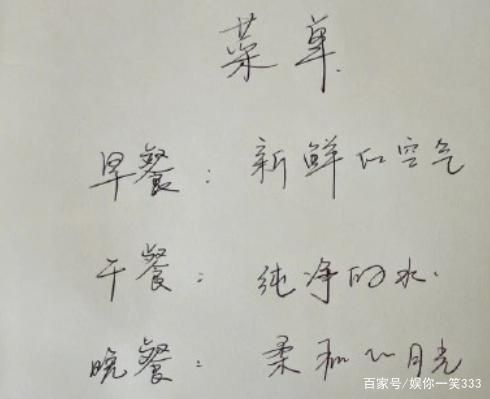 菜单
早餐：新鲜的空气
干餐：纯净的水.
晚餐：柔和的月光
百家号/娱你一笑333